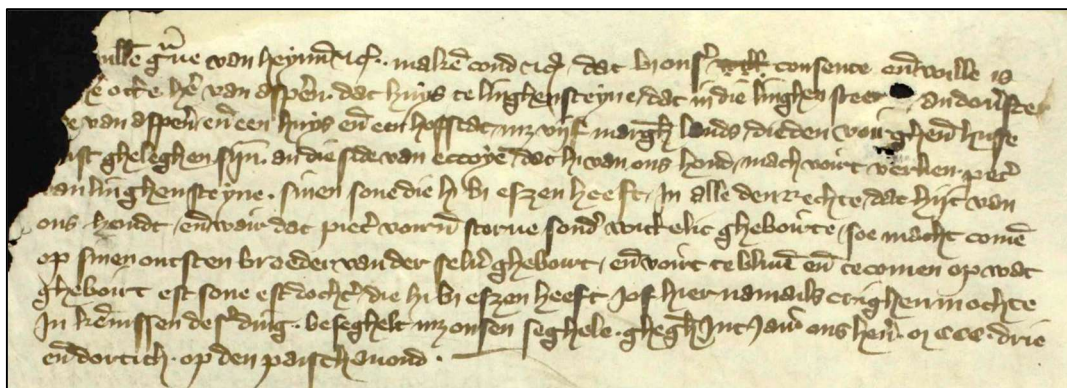 wille g͛ue van heynn̄ etc͛. maken̄ cond etc͛ dat bi onsē consente en̄ wille is
otte he͛ van aspen͛. dat huys te linghensteyne, dat in die linghen steet an dors͛ster
van aspen͛ en̄ een huys en̄ een hofstat mz vijf margh͛ lands, die den voir ghen̄ huse
gheleghen sijn. an die side van eccoye, dat hi van ons houd, mach voirt verlien pet͛
van linghensteyne. sinen sone die hi bi efzen heeft, in alle den rechte, dat hijt van
ons houdt, en̄ wair dat piet͛ voirn̄ storue sond͛ wittelic gheboirte, soe macht comē
op sinen outsten broeder van der selu͛ gheboirt, en̄ voirt te bliuē en̄ te comen op wat
gheboirt est sone est docht͛, die hi bi efzen heeft jof hier namails crighen mochte
In kēnissen des͛ ding. beseghelt mz onsen seghele. ghegh͛ Int Jaer ons hen͛. m ccc. drie
en̄ dortich. op den paischauond.